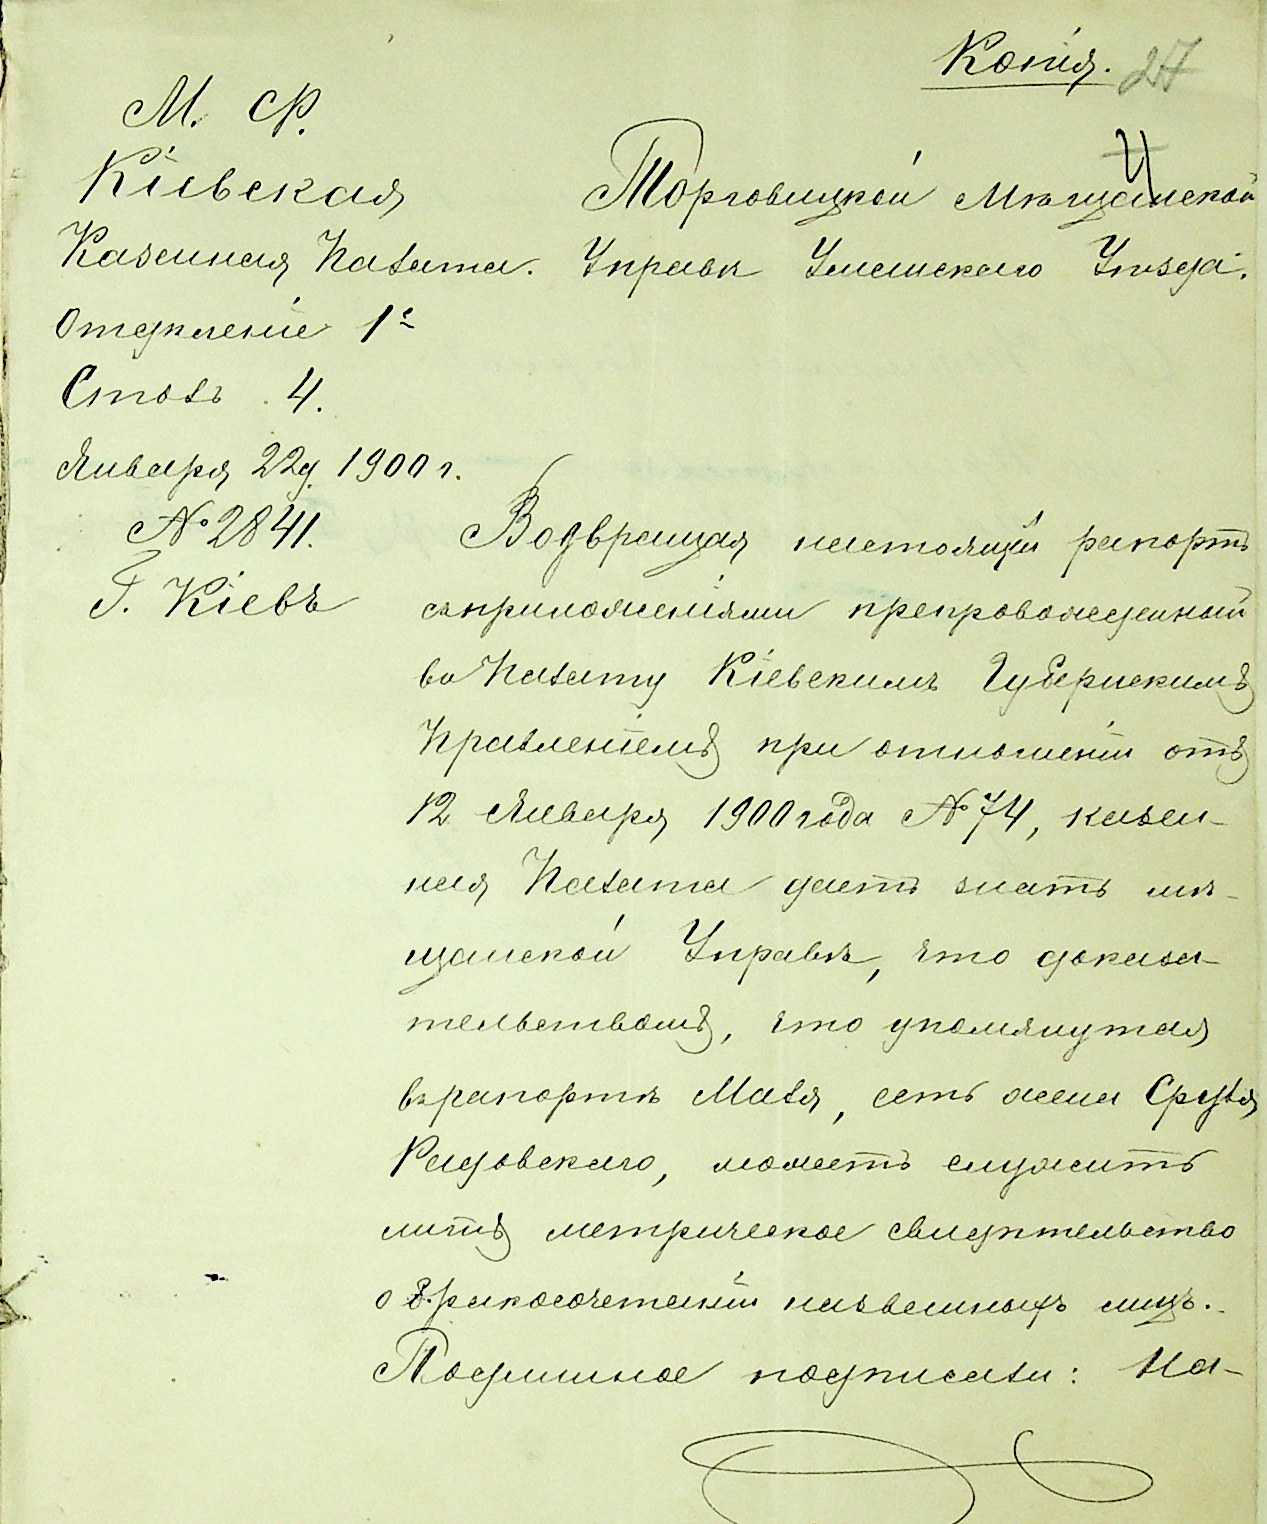 Копія. 27
М. Ф.
Кіевская
Казенная Палата.
Отдѣленіе 1е
Столъ 4.
Января 22д. 1900 г.
№ 2841.
Г. Кіевъ
Торговицкой Мѣщанской
Управѣ Уманскаго Уѣзда.
Возвращая настоящій рапортъ
съ приложеніями препровожденный
въ Палату Кіевскимъ Губернскимъ
Правленіемъ при отношеніи отъ
12 Января 1900 года № 74, казен-
ная Палата даетъ знать мѣ-
щанской Управѣ, что доказа-
тельствомъ, что упомянутая
въ рапортѣ Маля, есть жена Сруля
Радовскаго, можетъ служить
лишь метрическое свидѣтельство
о бракосочетаніи названныхъ лицъ.-
Подлинное подписали: На-